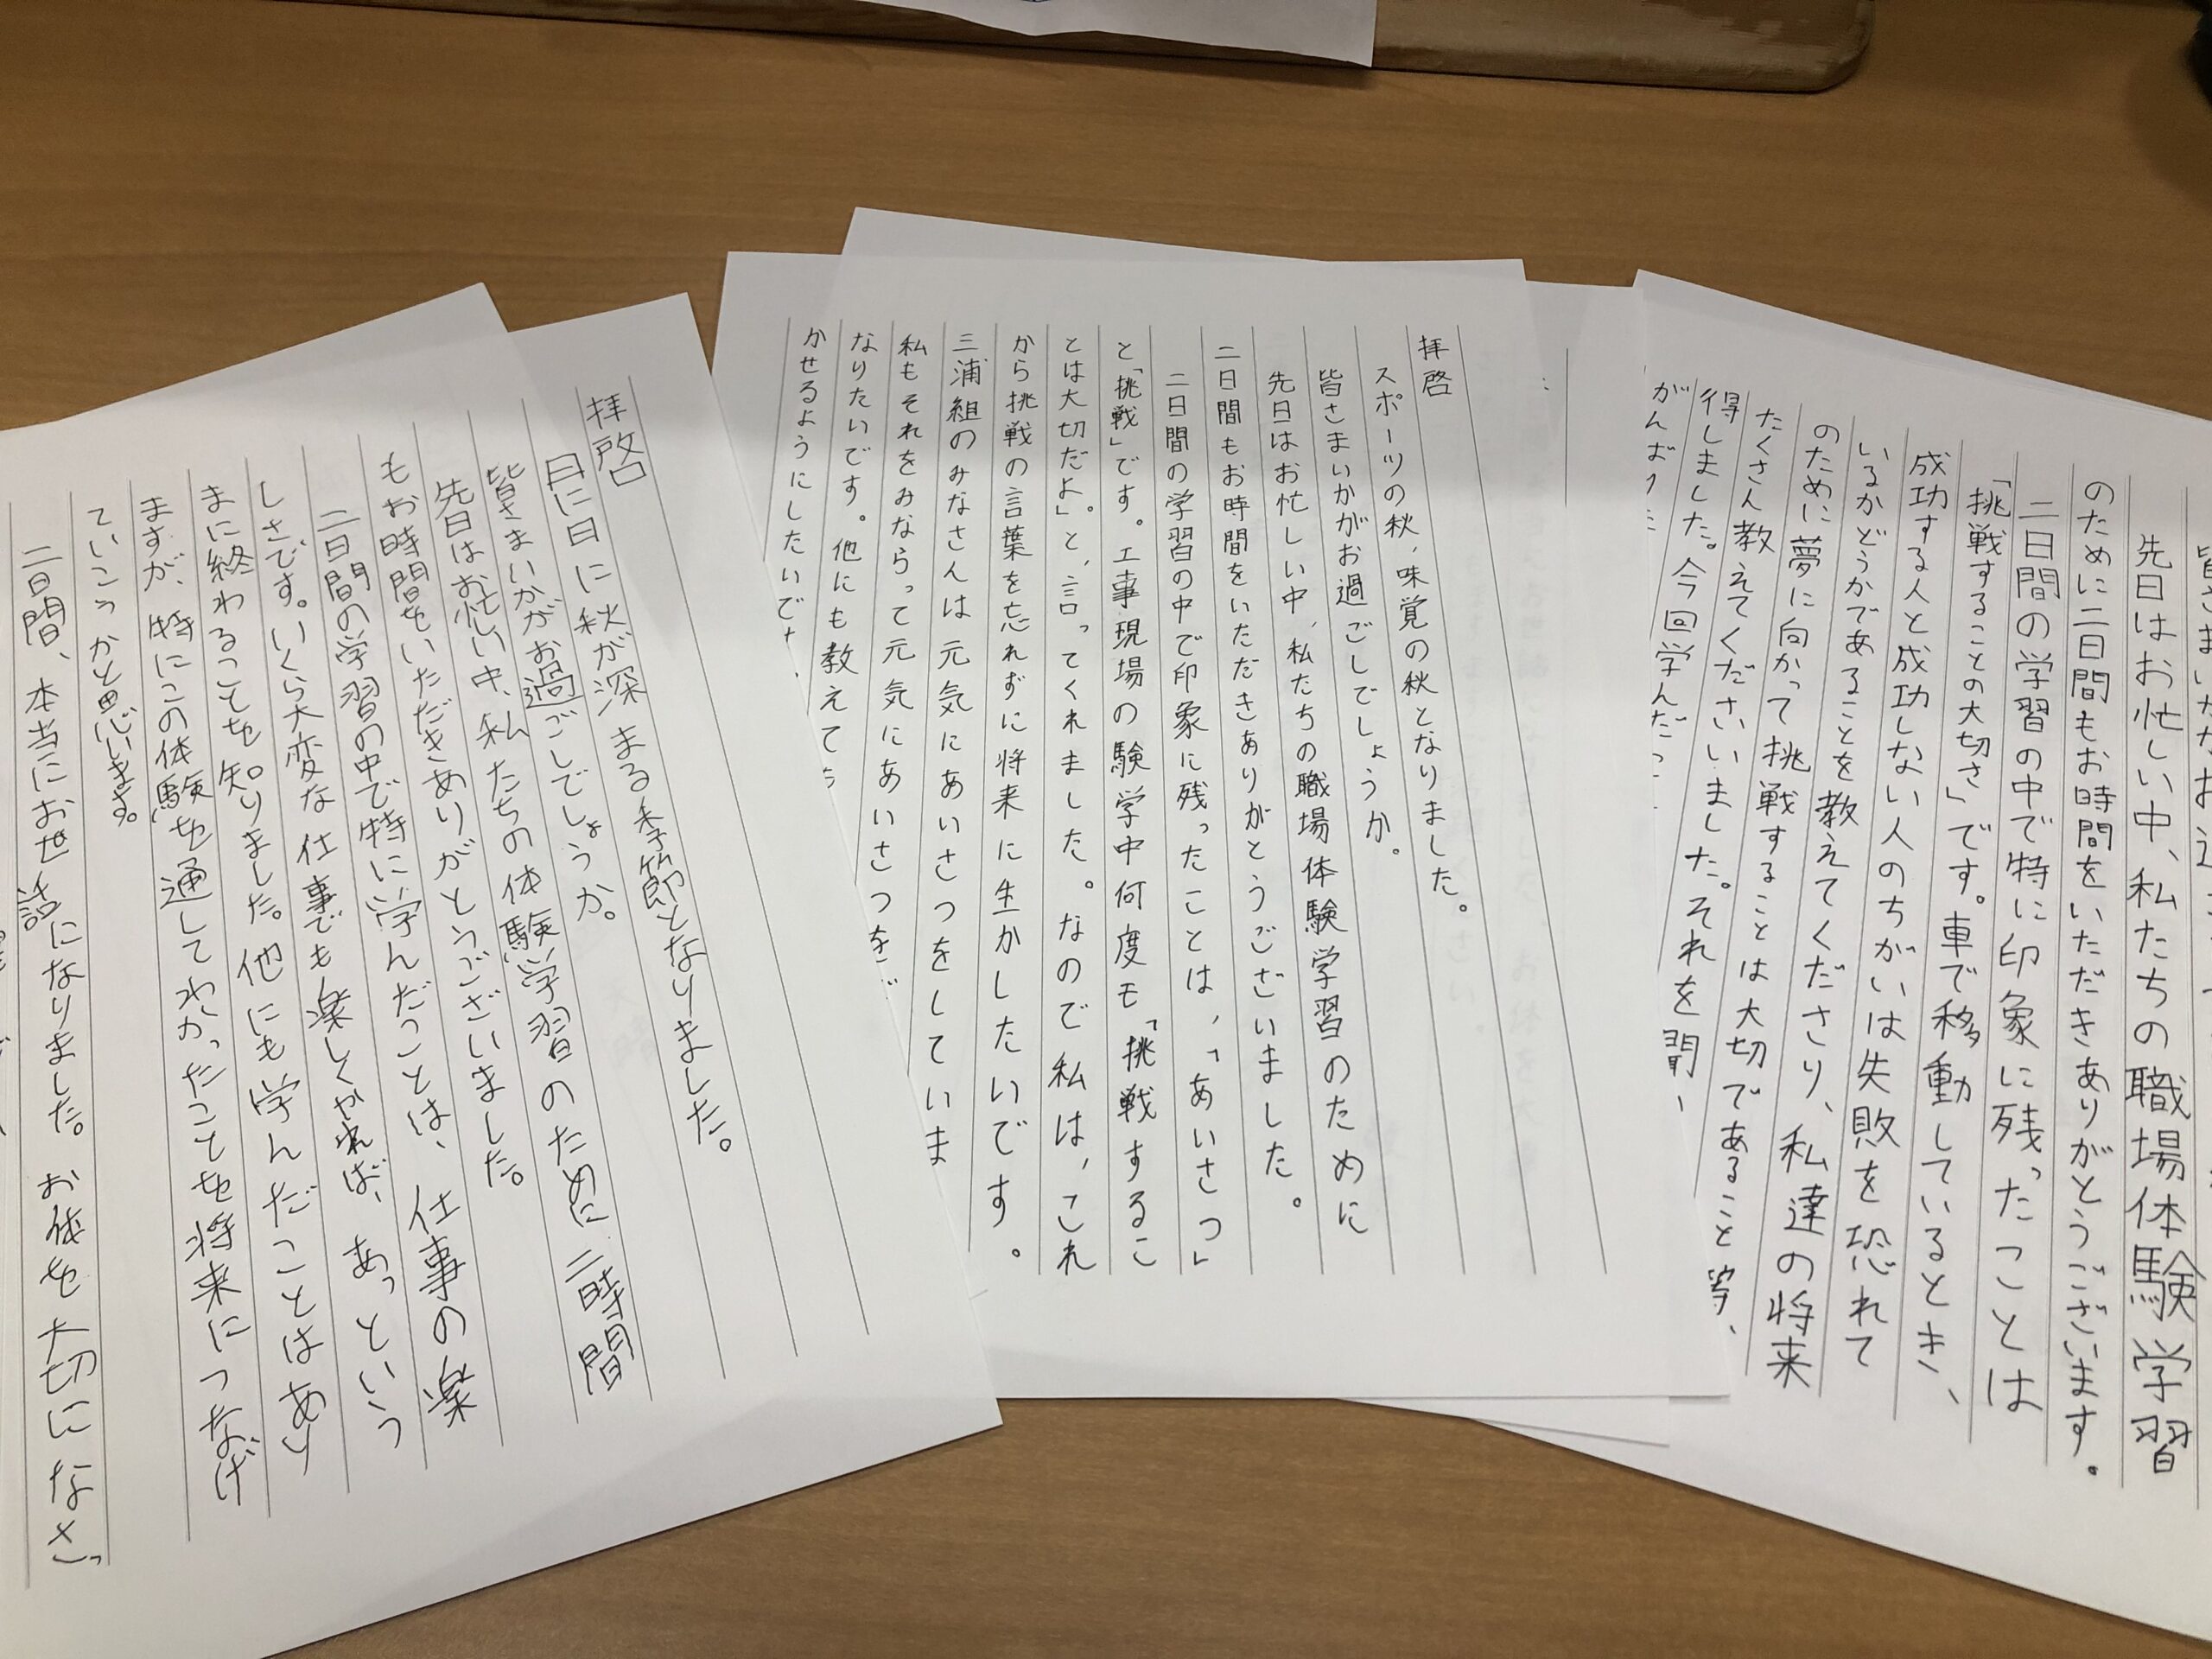 皆さまいかがお過
先日はお忙しい中、私たちの職場体験学習
のために二日間もお時間をいただきありがとうございます。
二日間の学習の中で特に印象に残ったことは
「挑戦することの大切さ」です。車で移動しているとき、
成功する人と成功しない人のちがいは失敗を恐れて
いるかどうかであることを教えてくださり、私達の将来
のために夢に向かって挑戦することは大切であること等、
たくさん教えてくださいました。それを聞
得しました。今回学んだ
がんばり
拝啓
スポーツの秋、味覚の秋となりました。
皆さまいかがお過ごしでしょうか。
先日はお忙しい中、私たちの職場体験学習のために
二日間もお時間をいただきありがとうございました。
二日間の学習の中で印象に残ったことは、「あいさつ」
と「挑戦」です。工事現場の験学中何度モ「挑戦するこ
とは大切だよ。」と、言ってくれました。なので私は、これ
から挑戦の言葉を忘れずに将来に生かしたいです。
三浦組のみなさんは元気にあいさつをしていま
私もそれをみならって元気にあいさつを
なりたいです。他にも教えて
かせるようにしたいで
拝啓
日に日に秋が深まる季節となりました。
皆さまいかがお過ごしでしょうか。
先日はお忙い中、私たちの体験学習のために二時間
もお時間をいただきありがとうございました。
二日間の学習の中で特に学んだことは、仕事の楽
しさです。いくら大変な仕事でも楽しくやれば、あっという
まに終わることを知りました。他にも学んだことはあり
ますが、特にこの体験を通してわかったことを将来につなげ
ていこうかと思います。
二日間、本当にお世話になりました。お体を大切になさっ